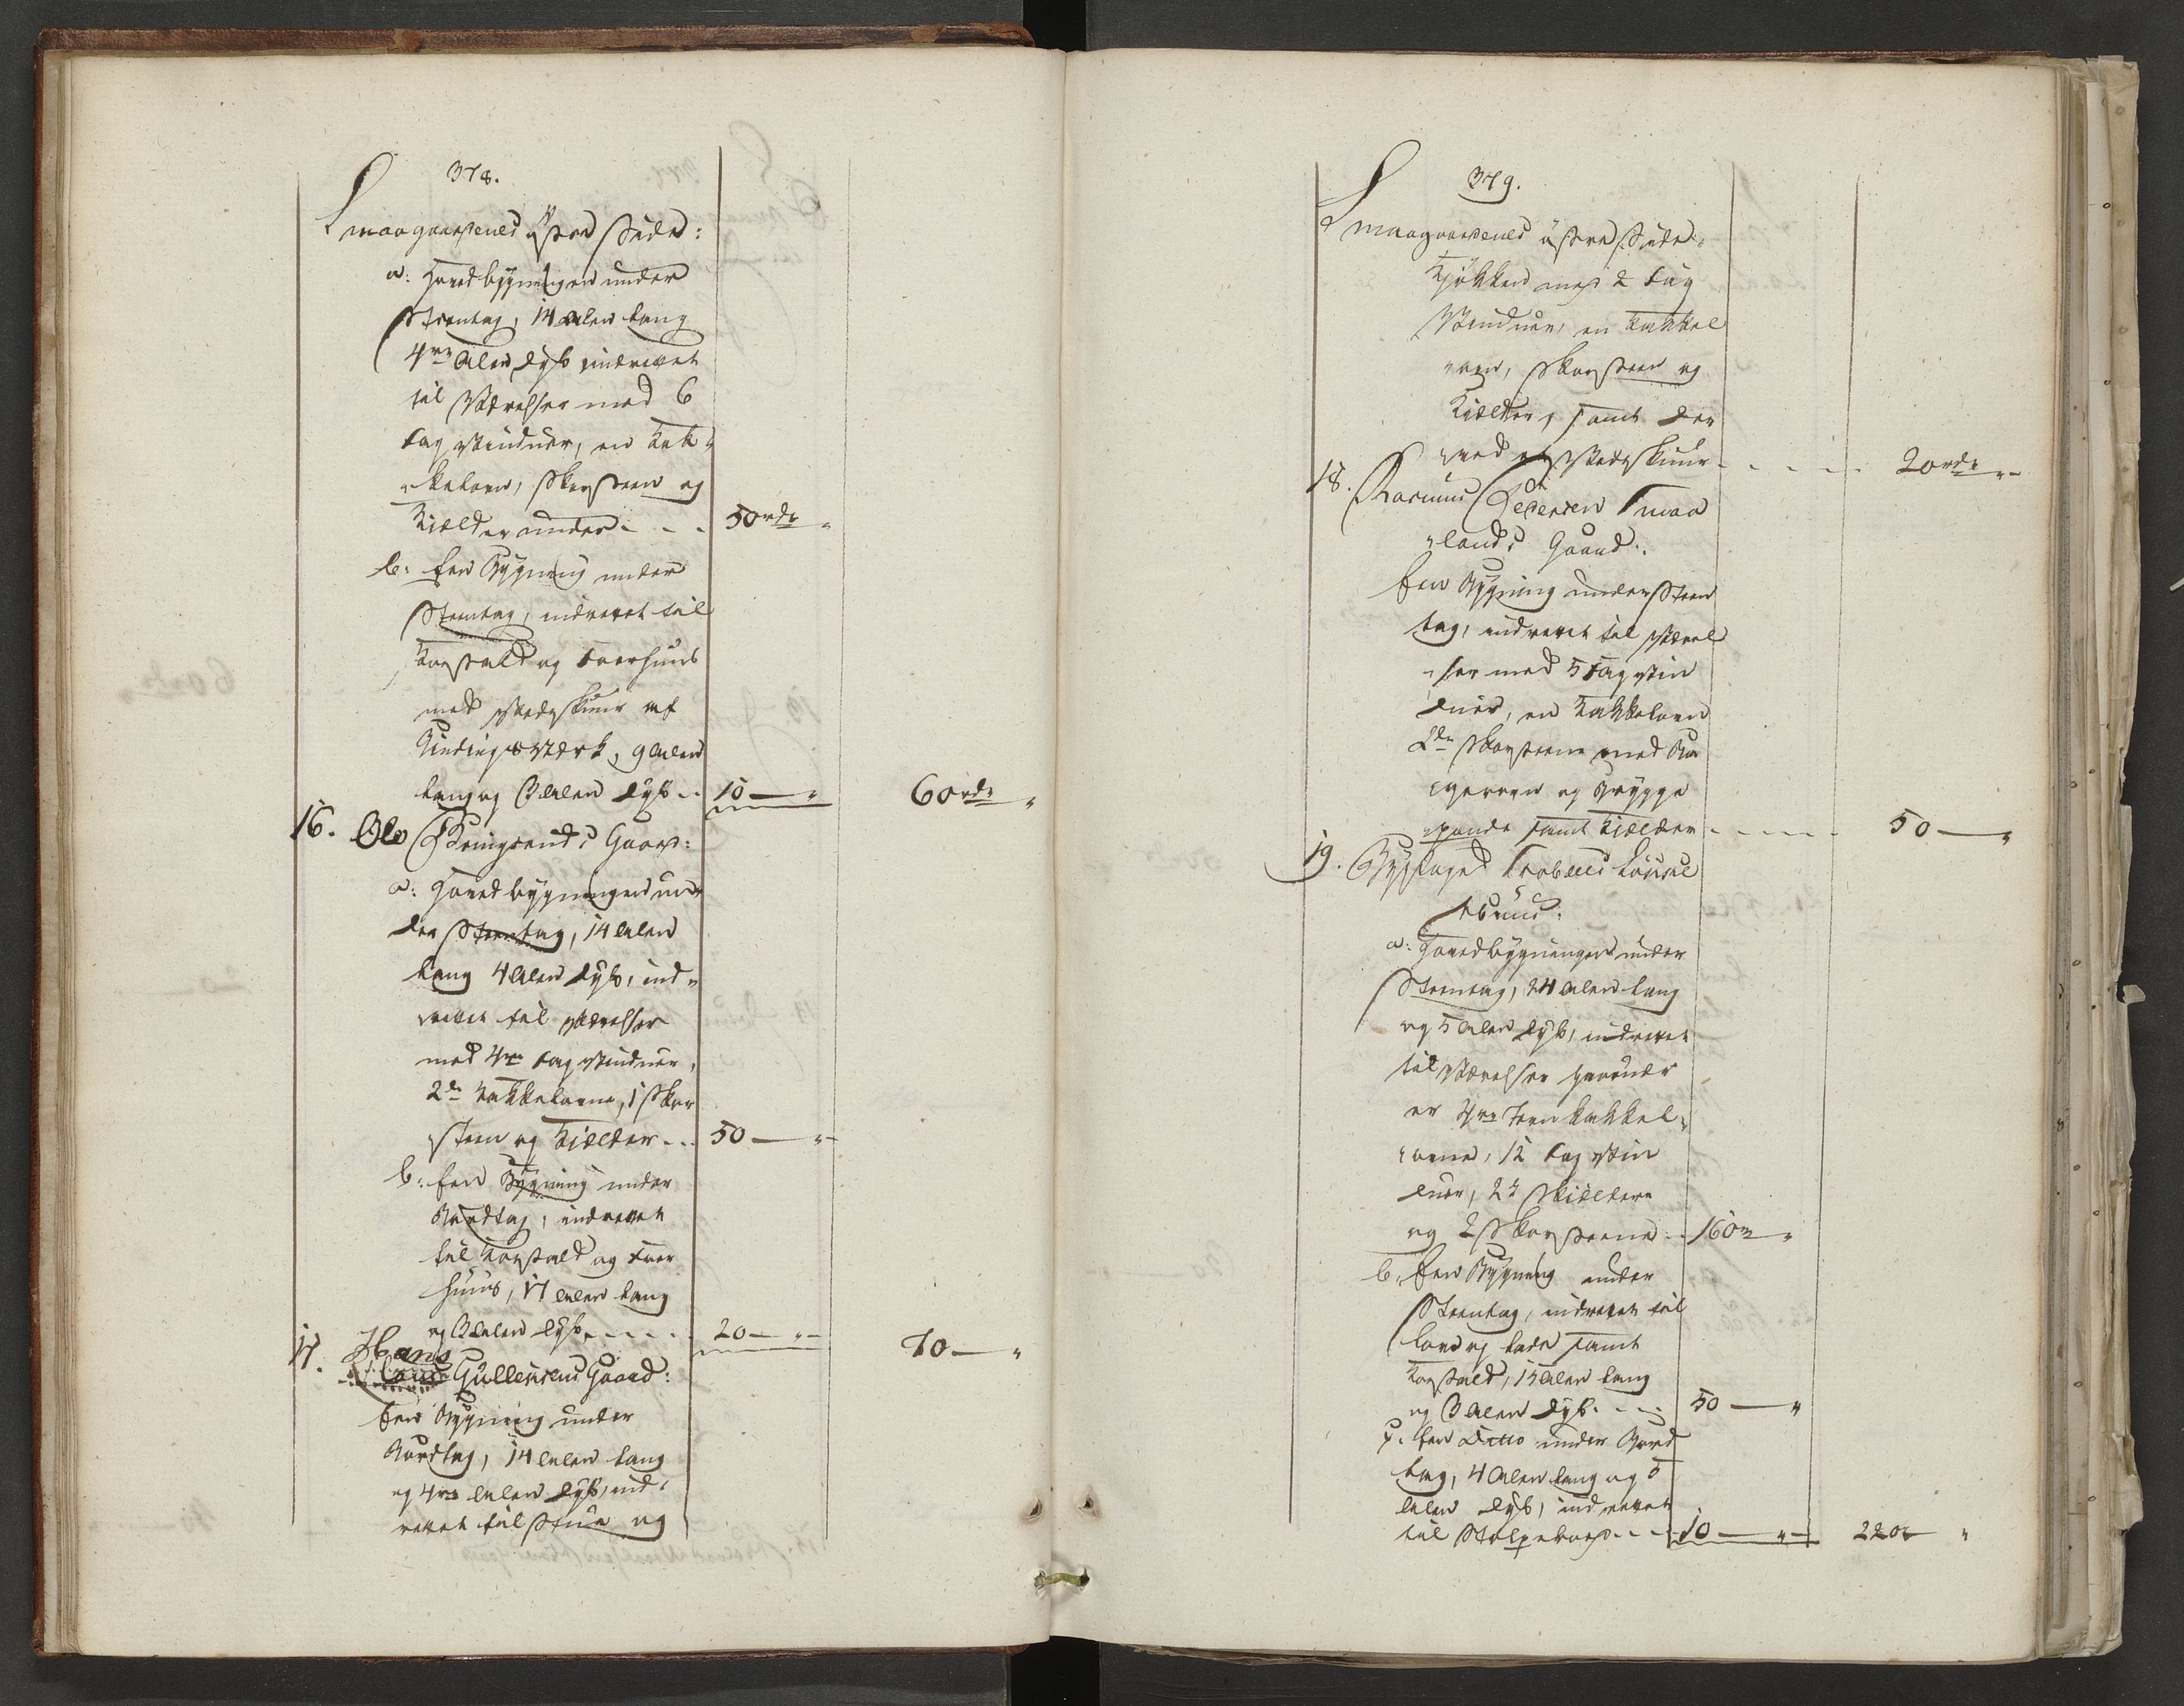 378.
Smaagadens østre Side:
a: Hovedbygningen under
Steentag, 14 Alen lang
4re Alen dyb indrettet
til Værelser med 6
fag Vinduer, en Kak-
kelovn, Skorsteen og
Kielder under - - - 50 rd "
b: Een Bygning under
Steentag, indrettet til
Kostald og Foerhuus
med Vedeskuur af
Bindingsværk, 9 Alen
lang og 3 Alen dyb - - 10 — " 60 rd "
16. Ole Gaard:
a: Hovedbygningen un-
der Steentag, 14 Alen
lang 4 Alen dyb, ind-
rettet til Værelser
med 4re fag Vinduer,
2de Kakkelovne, 1 Skor
steen og Kielder - - - 50 — "
b: Een Bygning under
Bordtag, indrettet
til Kostald og Foer
huus, 17 Alen lang
og 3 Alen dyb - - - - - 20 — " 70 — "
17. Hans
Gullersens Gaard:
Een Bygning under
Bordtag, 14 Alen lang
og 4re Alen dyb, ind-
rettet til Stue og
379.
Smaagadens østre Side:
Kjøkken med 2 fag
Vinduer, en Kakkel
ovn, Skorsteen og
Kielder, samt der
ved et Vedeskuur - - - - - 20 rd "
18. Rasmus Pedersen Smaa
lands Gaard:
Een Bygning under Steen
tag, indrettet til Værel
ser med 5 fag Vin
duer, en Kakkelovn
2de Skorsteene med Ba
gerovn og Brygge
pande samt Kielder - - - - - 50 — "
19. Byfoged
huus:
a: Hovedbygningen under
Steentag, 24 Alen lang
og 5 Alen dyb, indrettet
til Værelser hvorudi
er 4re Jern Kakkel-
ovne, 12 fag Vin
duer, 2de Kieldere
og 2 Skorsteene - - 160 rd "
b: Een Bygning under
Steentag, indrettet til
Loe og Lade samt
Kostald, 15 Alen lang
og 3 Alen dyb - - - 50 — "
c: Een Ditto under Bord
tag, 4 Alen lang og 5
Alen dyb, indrettet
til Stolpeboed - - - 10 — " 220 "